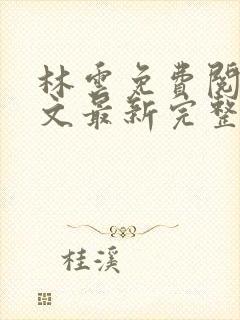 林雲免費閱
文最新完整
桂溪